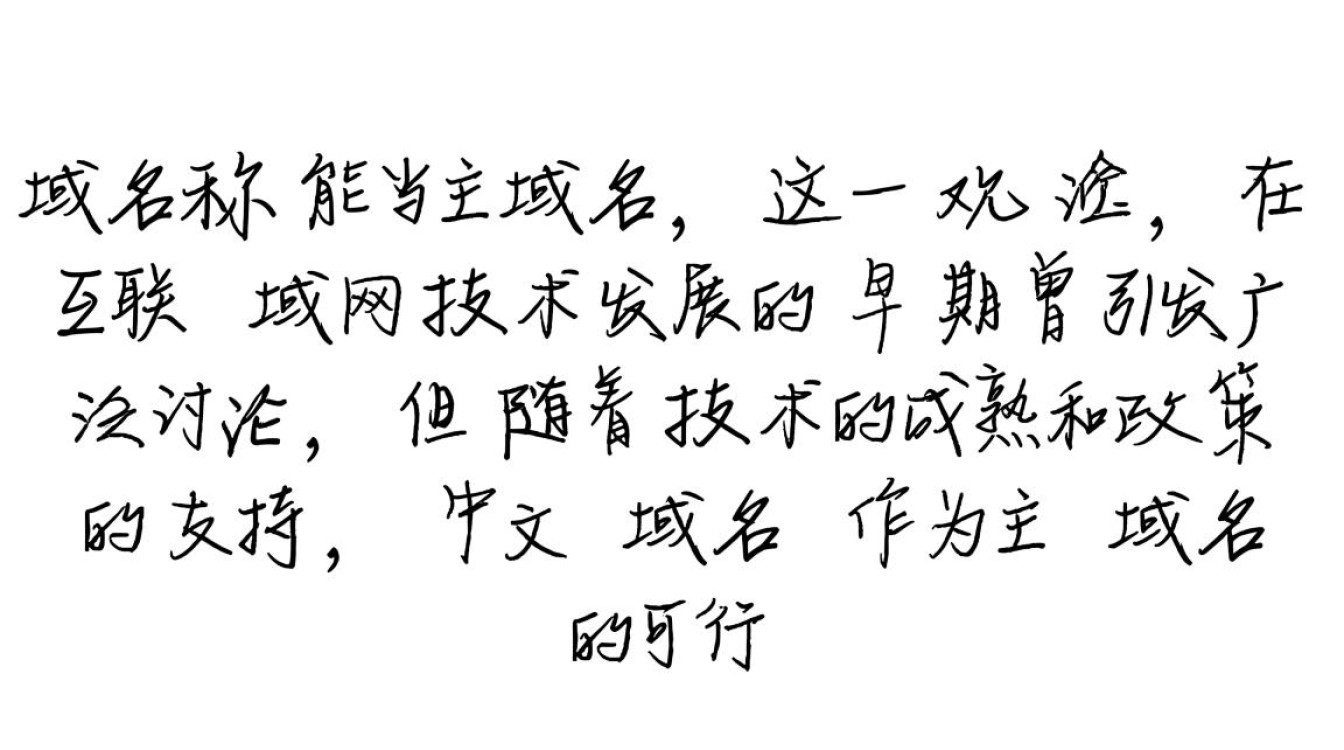 域名称能当主域名，这一观，在
互联 域网技术发展的早期曾引发广
泛讨论，但随着技术的成熟和政策
的支持，中文 域名 作为主 域名
的可行